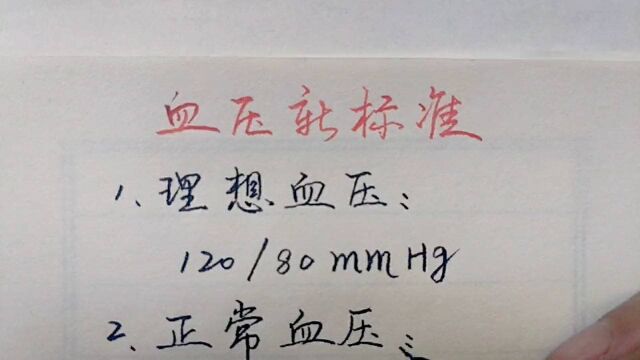 血压新标准
1、理想血压：
120/80mmHg
2、正常血压：